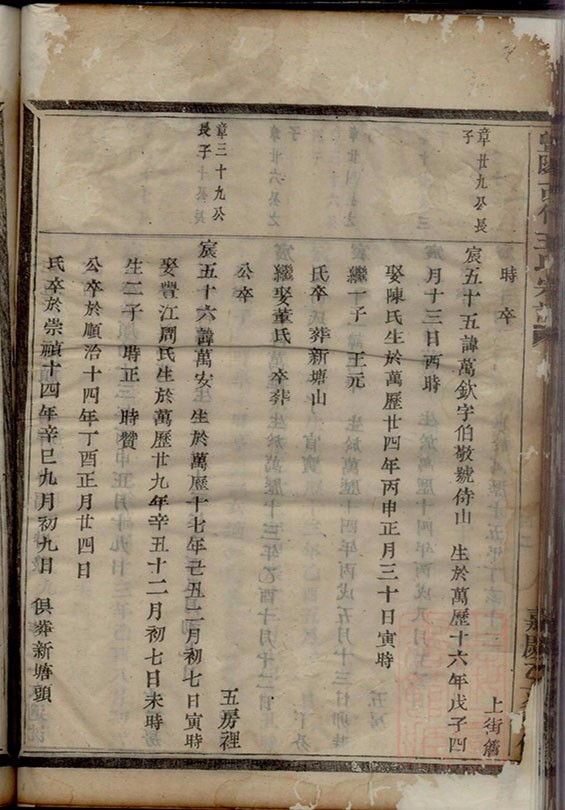 時卒
上街篢
章廿九公長
子
宸五十五諱萬欽字伯敬號侍山 生於萬歷十六年戊子四
月十三日酉時
娶陳氏生於萬歷廿四年丙申正月三十日寅時
繼一子 王元
氏卒 葬新塘山
繼娶董氏 卒葬
公卒
五房裡
章三十九公
長子
宸五十六諱萬安 生於萬歷十七年己丑二月初七日寅時
娶豐江周氏生於萬歷廿九年辛丑十二月初七日未時
生二子 時正 時贊
公卒於順治十四年丁酉正月廿四日
氏卒於崇禎十四年辛巳九月初九日 俱葬新塘頭